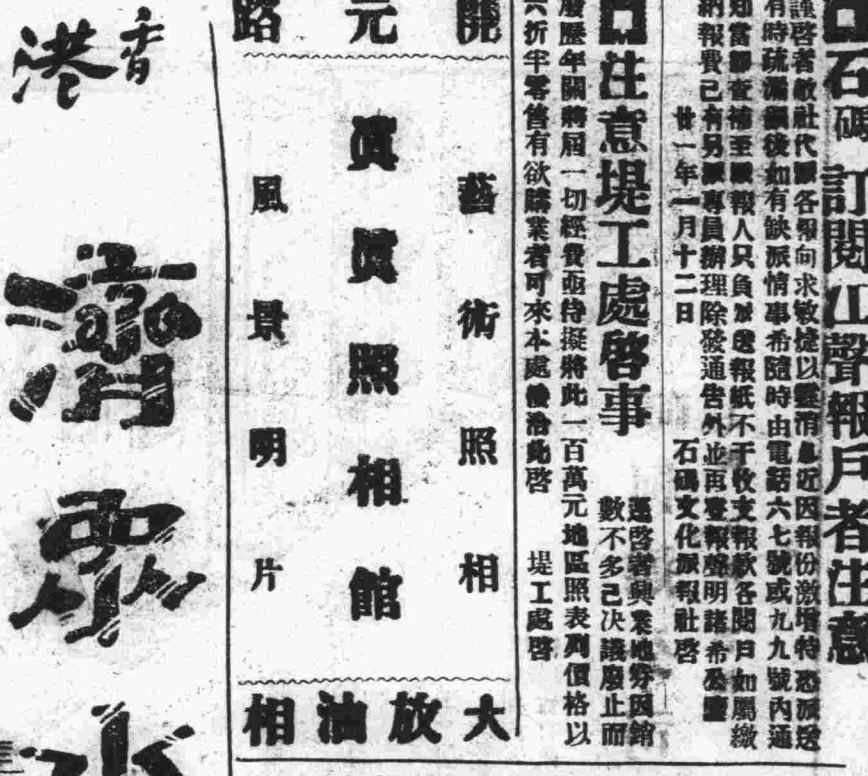 石碼訂閱止聲報戶者注意
謹啓者敝社代各報向求敏捷以靈消息近因報份激增特恐派送
有時疏漏後如有缺派情事希隨時由電話六七號或九九號內通
知當卽查補至報人只負派送報紙不干收支報款各閱戶如屬繳
納報費已有另派專員辦理除發通告外並再登報聲明諸希公鑒
廿一年一月十二日 石碼文化派報社啓
注意堤工處啓事
逕啓者興業地好因銷
數不多已決議廢止而
廢歷年關將屆一切經費亟待擬將此一百萬元地區照表列價格以
六折半零售有欲購業者可來本處接洽此啓 堤工處啓
開元路
藝術照相
眞眞照相館
風景明片
大放油相
香港
濟眾水